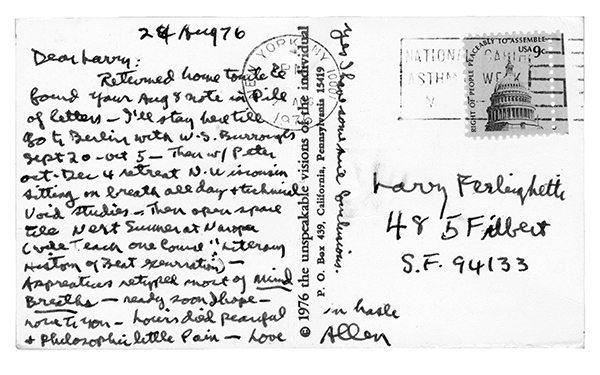 24 Aug 76
Dear Larry:
Returned home tonite &
found your Aug 8 note in Pile
of letters – I'll stay here till
go to Berlin with W.S. Burroughs
Sept 20 - Oct 5 – Then w/ Peter
Oct - Dec 4 retreat N. Wisconsin
sitting on breath all day & technical
Void studies – Then open space
till Next Summer at Naropa
(Teach one Course "Literary
History of Beat Generation) –
Apprentices retyped most of Mind
Breaths – ready soon I hope –
now to you – Louis died peaceful
& Philosophic little Pain – Love
in haste
Allen
Yes I have some conclusions.
© 1976 the unspeakable visions of the individual
P. O. Box 439, California, Pennsylvania 15419
NEW YORK, NY
1976
NATIONAL
ASTHMA WEEK
RIGHT OF PEOPLE PEACEABLY TO ASSEMBLE
USA 9c
Larry Ferlinghetti
485 Filbert
S.F. 94133